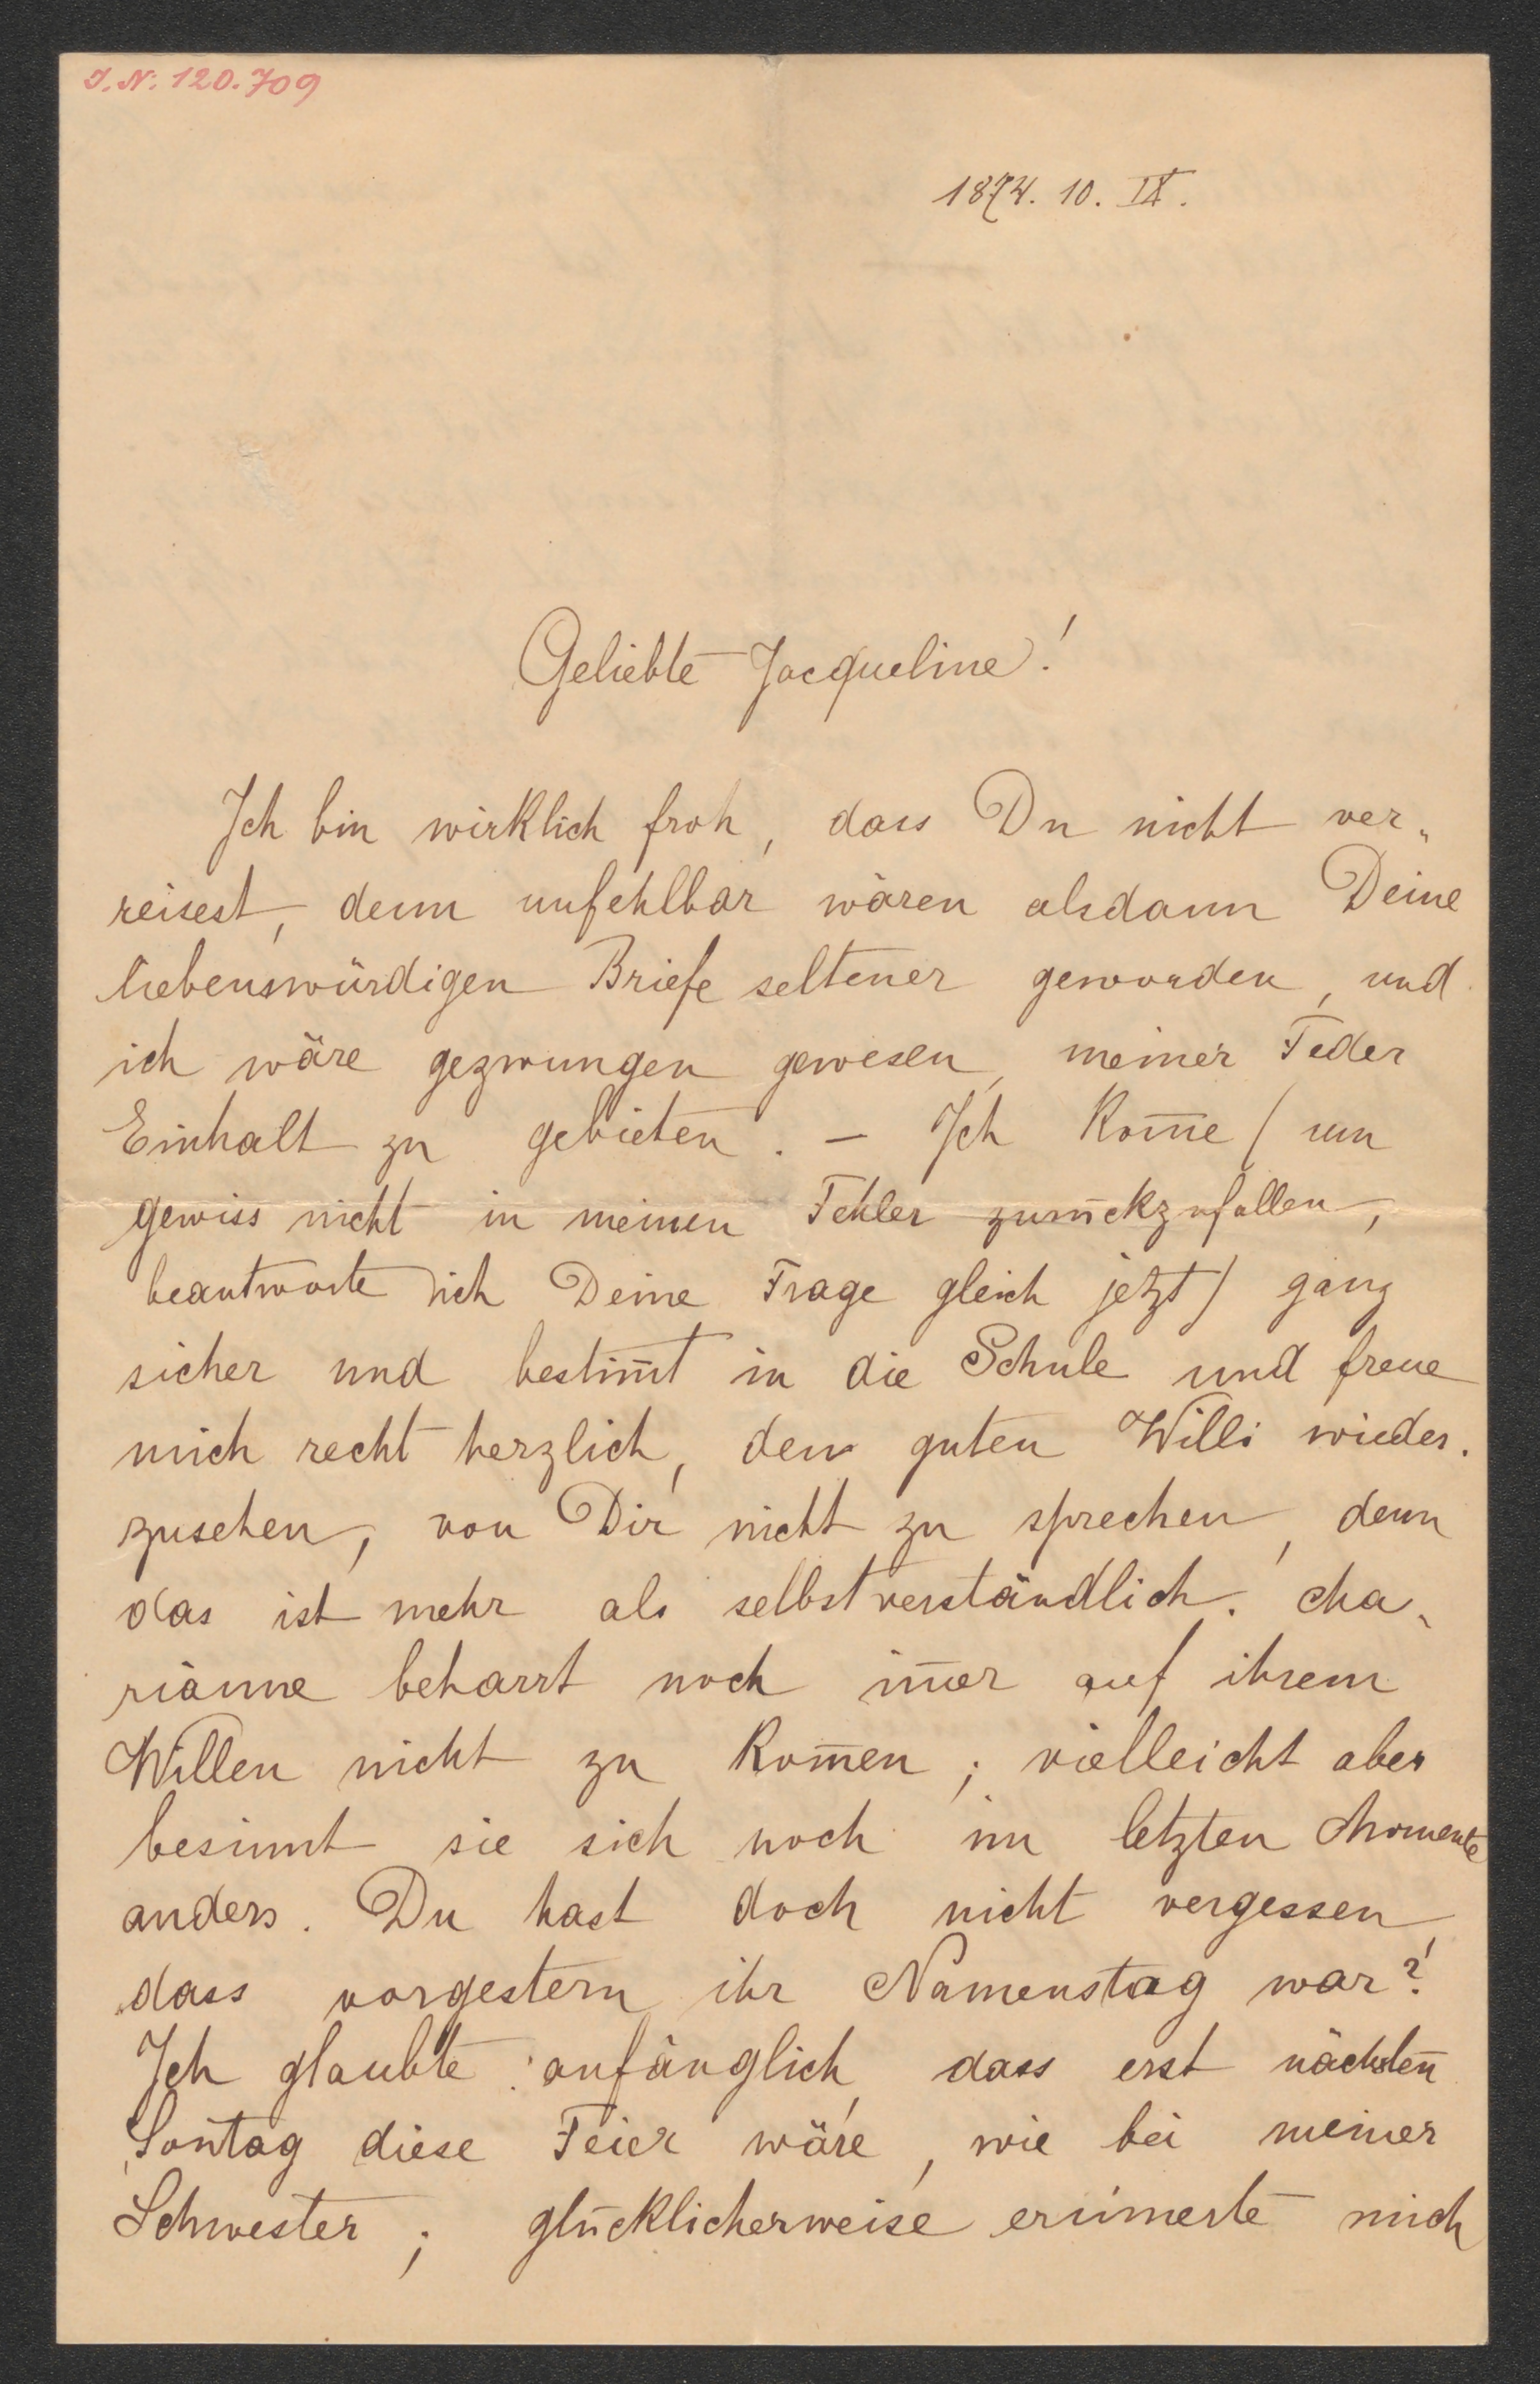 I. N. 120.709
1874. 10. IX.
Geliebte Jacqueline!
Ich bin wirklich froh, dass Du nicht ver„
reisest, denn unfehlbar wären alsdann Deine
liebenswürdigen Briefe seltener geworden, und
ich wäre gezwungen gewesen, meiner Feder
Einhalt zu gebieten. – Ich kom̄e / um
gewiss nicht in meinen Fehler zurückzufallen,
beantworte ich Deine Frage gleich jetzt / ganz
sicher und bestim̄t in die Schule und freue
mich recht herzlich, den guten Willi wieder„
zusehen, von Dir nicht zu sprechen, denn
das ist mehr als selbstverständlich. Ma„
rianne beharrt noch im̄er auf ihrem
Willen nicht zu kom̄en; vielleicht aber
besinnt sie sich noch im letzten Momente
anders. Du hast doch nicht vergessen,
dass vorgestern ihr Namenstag war?!
Ich glaubte anfänglich, dass erst nächsten
Son̄tag diese Feier wäre, wie bei meiner
Schwester; glücklicherweise erinnerte mich